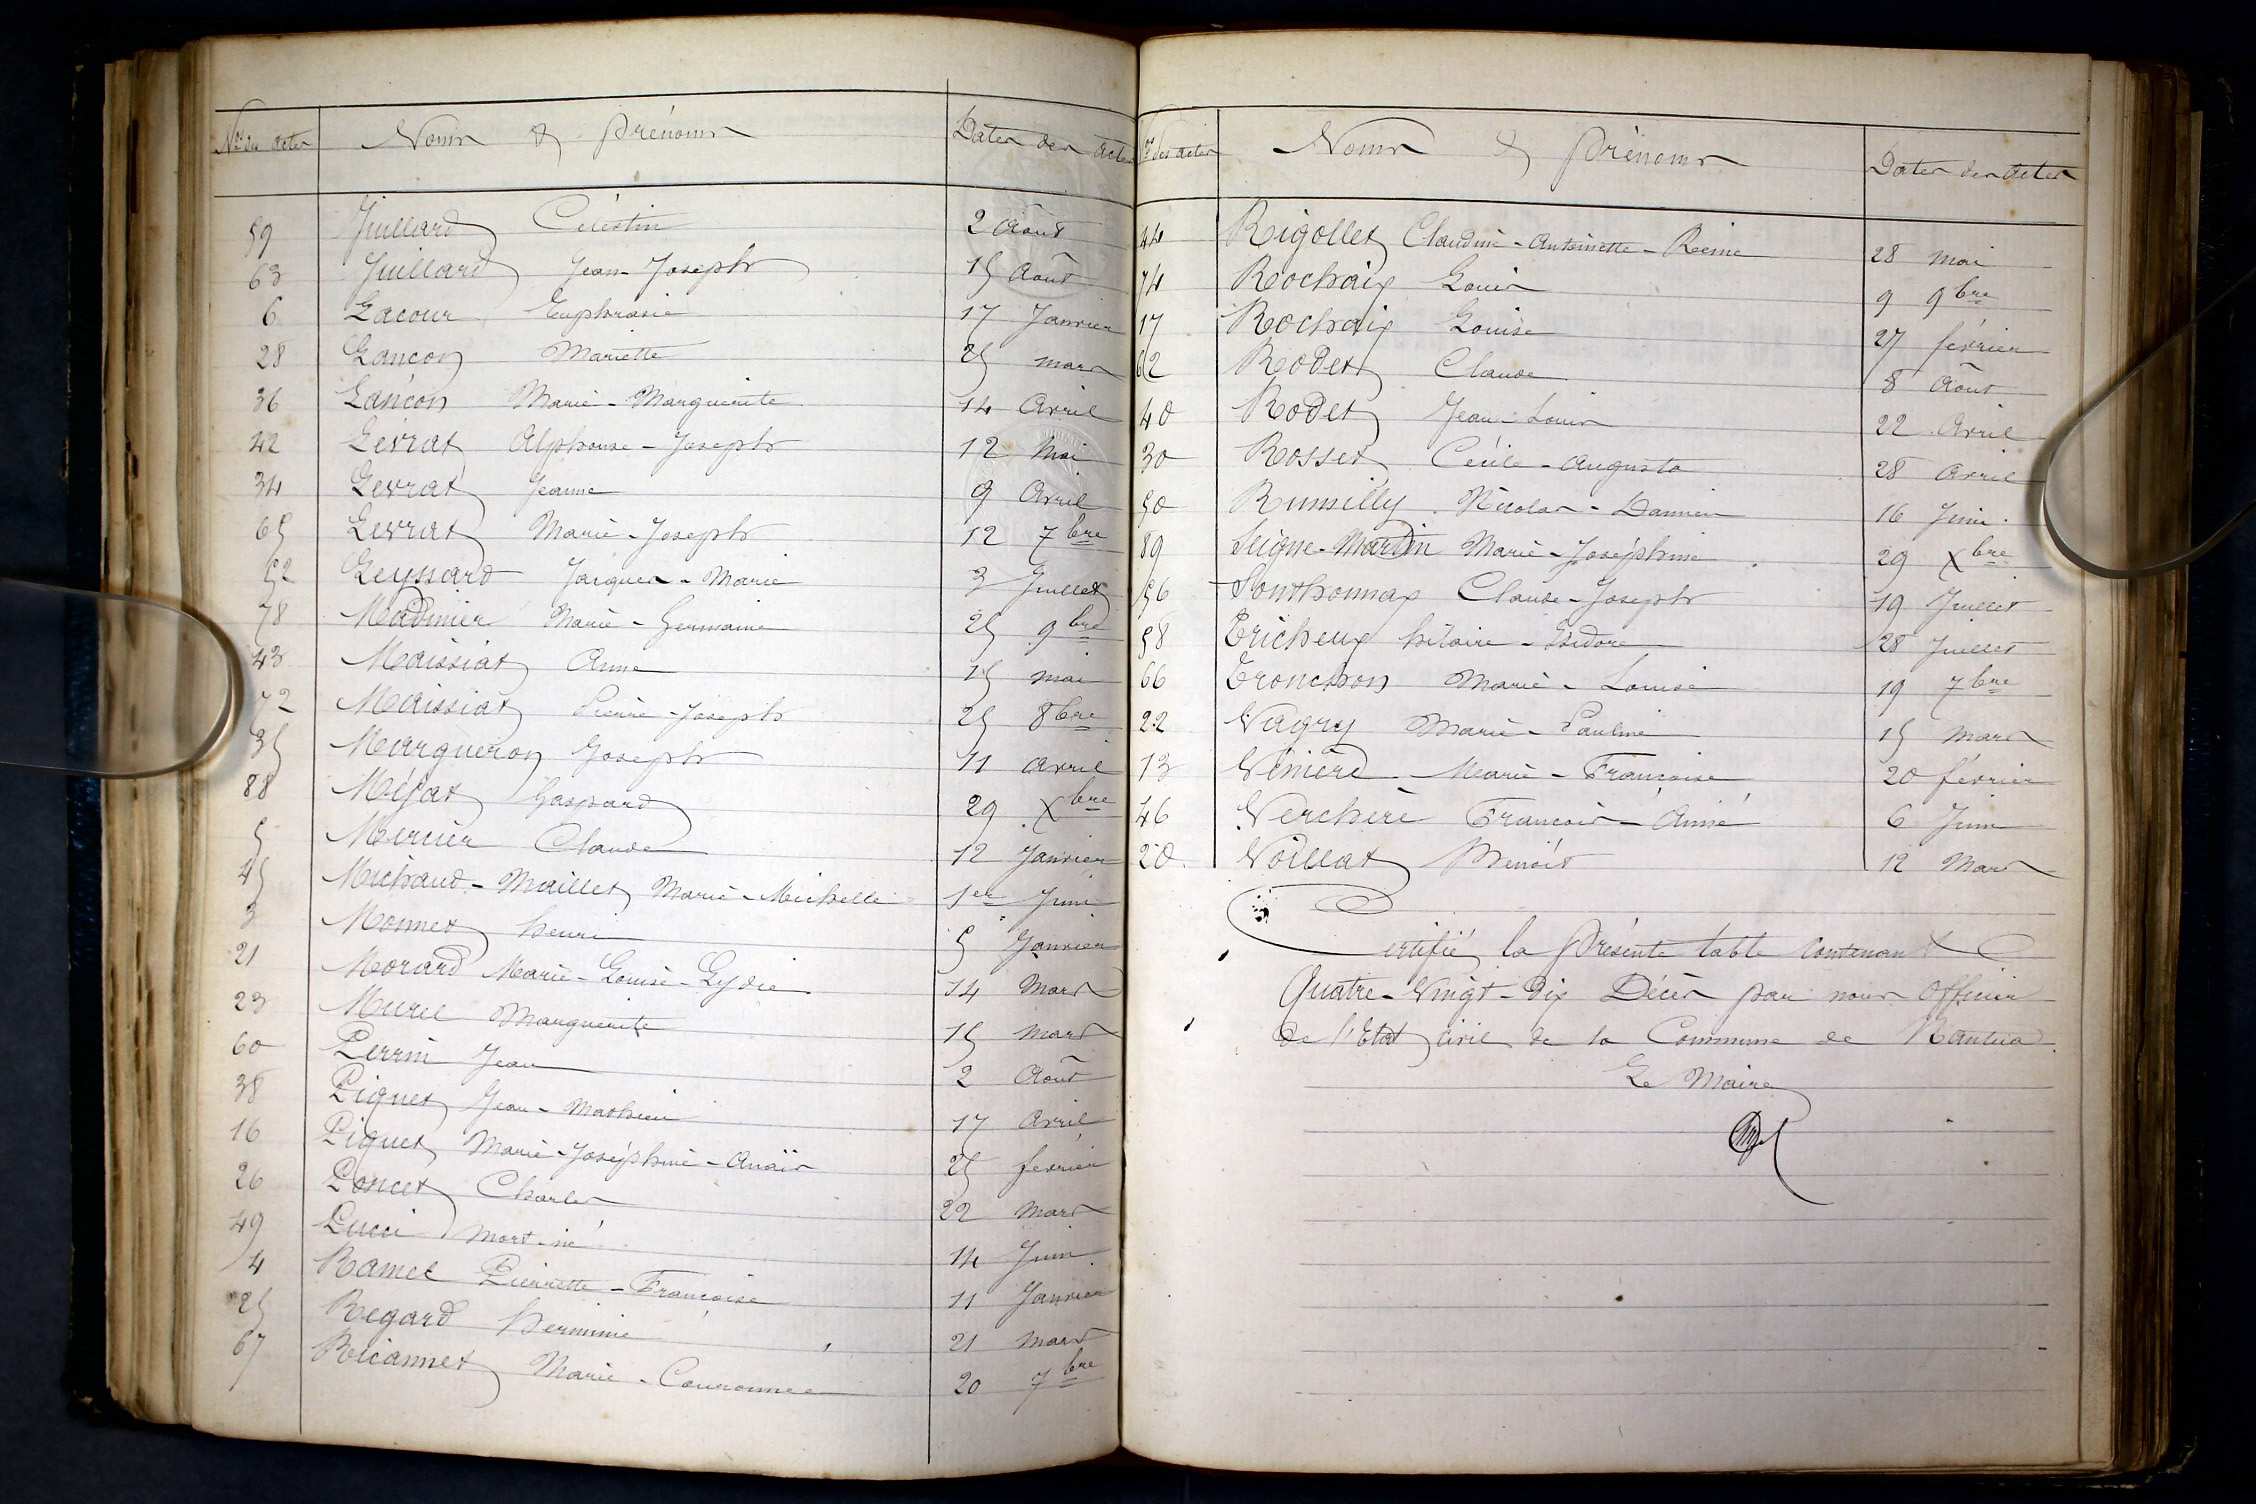 Nos des actes Noms & Prénoms Dates des Actes
59 Juillard Célestin 2 Août
63 Juillard Jean-Joseph 15 Août
6 Lacour Euphrasie 17 Janvier
28 Lançon Mariette 25 mars
36 Lançon Marie-Marguerite 14 Avril
42 Levrat Alphonse-Joseph 12 Mai
34 Levrat Jeanne 9 Avril
65 Levrat Marie-Joseph 12 7bre
52 Leyssard Jacques-Marie 3 Juillet
78 Madinier Marie-Germaine 25 9bre
43 Maissiat Anne 15 mai
72 Maissiat Pierre-Joseph 25 8bre
35 Margueron Joseph 11 avril
88 Méjat Gaspard 29 Xbre
5 Mercier Claude 12 Janvier
45 Michaud-Maillet Marie-Michelle 1er Juin
3 Monnet henri 5 Janvier
21 Morard Marie-Louise-Lydie 14 Mars
23 Muree Marguerite 15 mars
60 Perrin Jean 2 Août
38 Piquet Jean-Mathieu 17 Avril
16 Piquet Marie-Joséphine-Anaïs 25 février
26 Poncet Charles 22 Mars
49 Pucci mort-né 14 Juin
4 Ramel Pierrette-Francoise 11 Janvier
25 Regard herminie 21 mars
67 Ricannet Marie-Couronnée 20 7bre
Nos des actes Noms & Prénoms Dates des Actes
44 Rigollet Claudine-Antoinette-Reine 28 mai
74 Rochaix Louis 9 9bre
17 Rochaix Louise 27 février
62 Rodet Claude 8 Août
40 Rodet Jean-Louis 22 Avril
30 Rosset Cécile-Augusta 28 avril
50 Rumilly Nicolas-Damien 16 Juin
89 Seigne-Martin Marie-Joséphine 29 Xbre
56 Sonthonnax Claude-Joseph 19 Juillet
58 Tricheux hilaire-Isidore 28 Juillet
66 Tronchon Marie-Louise 19 7bre
22 Vagry Marie-Pauline 15 Mars
13 Vénière Marie-Françoise 20 février
46 Verchère Francois-Aimé 6 Juin
20 Voillat Benoit 12 Mars
Certifié la Présente table contenant
Quatre-Vingt-Dix Décès par nous Officier
de l'Etat civil de la Commune de Nantua
Le Maire